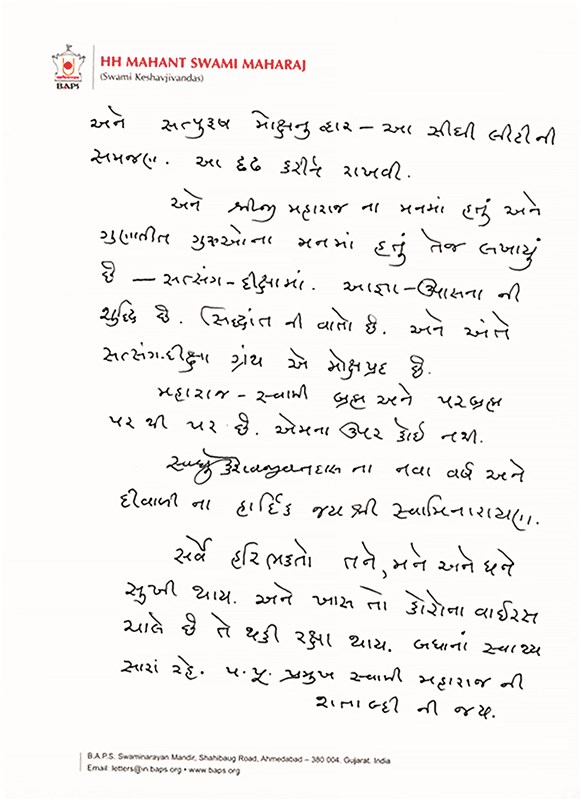 HH MAHANT SWAMI MAHARAJ
(Swami Keshavjivandas)
BAPS
અને સત્પુરુષ મોક્ષનુ દ્વાર – આ સીધી લીટીની
સમજણ. આ દૃઢ કરીને રાખવી.
અને શ્રીજી મહારાજ ના મનમાં હતું અને
ગુણાતીત ગુરુઓના મનમાં હતું તેજ લખાયું
છે — સત્સંગ-દીક્ષામાં. આજ્ઞા-ઉપાસના ની
શુદ્ધિ છે. સિદ્ધાંત ની વાતો છે. અને અંતે
સત્સંગ-દીક્ષા ગ્રંથ એ મોક્ષપ્રદ છે.
મહારાજ - સ્વામી બ્રહ્મ અને પરબ્રહ્મ
પર થી પર છે. એમના ઉપર કોઈ નથી.
સાધુ કેશવજીવનદાસ ના નવા વર્ષ અને
દીવાળી ના હાર્દિક જય શ્રી સ્વામિનારાયણ.
સર્વે હરિભક્તો તને, મને અને ધને
સુખી થાય. અને ખાસ તો કોરોના વાઈરસ
ચાલે છે તે થકી રક્ષા થાય. બધાનાં સ્વાથ્ય
સારાં રહે. પ.પૂ. પ્રમુખ સ્વામી મહારાજ ની
શતાબ્દી ની જય.
B.A.P.S. Swaminarayan Mandir, Shahibaug Road, Ahmedabad – 380 004. Gujarat. India
Email: letters@in.baps.org • www.baps.org